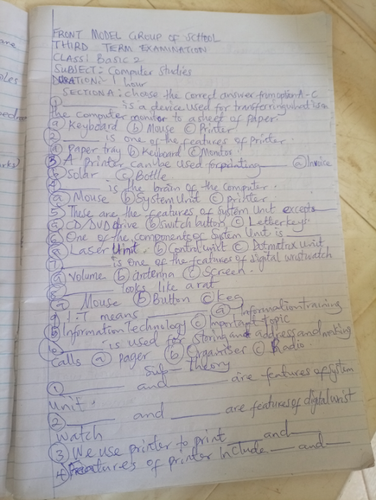 FRONT MODEL GROUP OF SCHOOL
THIRD TERM EXAMINATION
CLASS: BASIC 2
SUBJECT: Computer Studies
DURATION: 1 hour
SECTION A: Choose the correct answer from option A - C
① ______ is a device used for transferring what is on
the computer monitor to a sheet of paper
ⓐ Keyboard ⓑ Mouse ⓒ Printer
② ______ is one of the features of printer.
ⓐ Paper tray ⓑ Keyboard ⓒ Monitor
3 A printer can be used for printing ______ ⓐ Invoice
ⓑ Solar ⓒ Bottle
4 ______ is the brain of the computer.
ⓐ Mouse ⓑ System Unit ⓒ printer
5 These are the features of System Unit except ______
ⓐ CD/DVD drive ⓑ switch button ⓒ Letter keys
6 One of the components of System Unit is ______
ⓐ Laser Unit ⓑ Control unit ⓒ Dotmatrix unit
7 ______ is one of the features of digital wristwatch
ⓐ volume ⓑ antenna ⓒ Screen.
8 ______ looks like a rat
ⓐ Mouse ⓑ Button ⓒ Key
9 I.T means ______ ⓐ Information training
ⓑ Information Technology ⓒ Important Topic
10 ______ is used for storing address and making
calls ⓐ pager ⓑ Organiser ⓒ Radio.
Sub - Theory
① ______ and ______ are features of System
Unit.
② ______ and ______ are features of digital wrist
watch
③ We use printer to print ______ and ______
4 Features of printer include ______ and ______